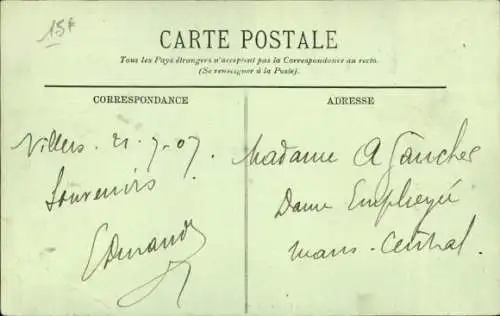 15f
CARTE POSTALE
Tous les Pays étrangers n'acceptent pas la Correspondance au recto.
(Se renseigner à la Poste).
CORRESPONDANCE
Villers. 21-7-07.
Souvenirs
EDurand
ADRESSE
Madame A Gaucher
Dame Employée
Mans-Central.